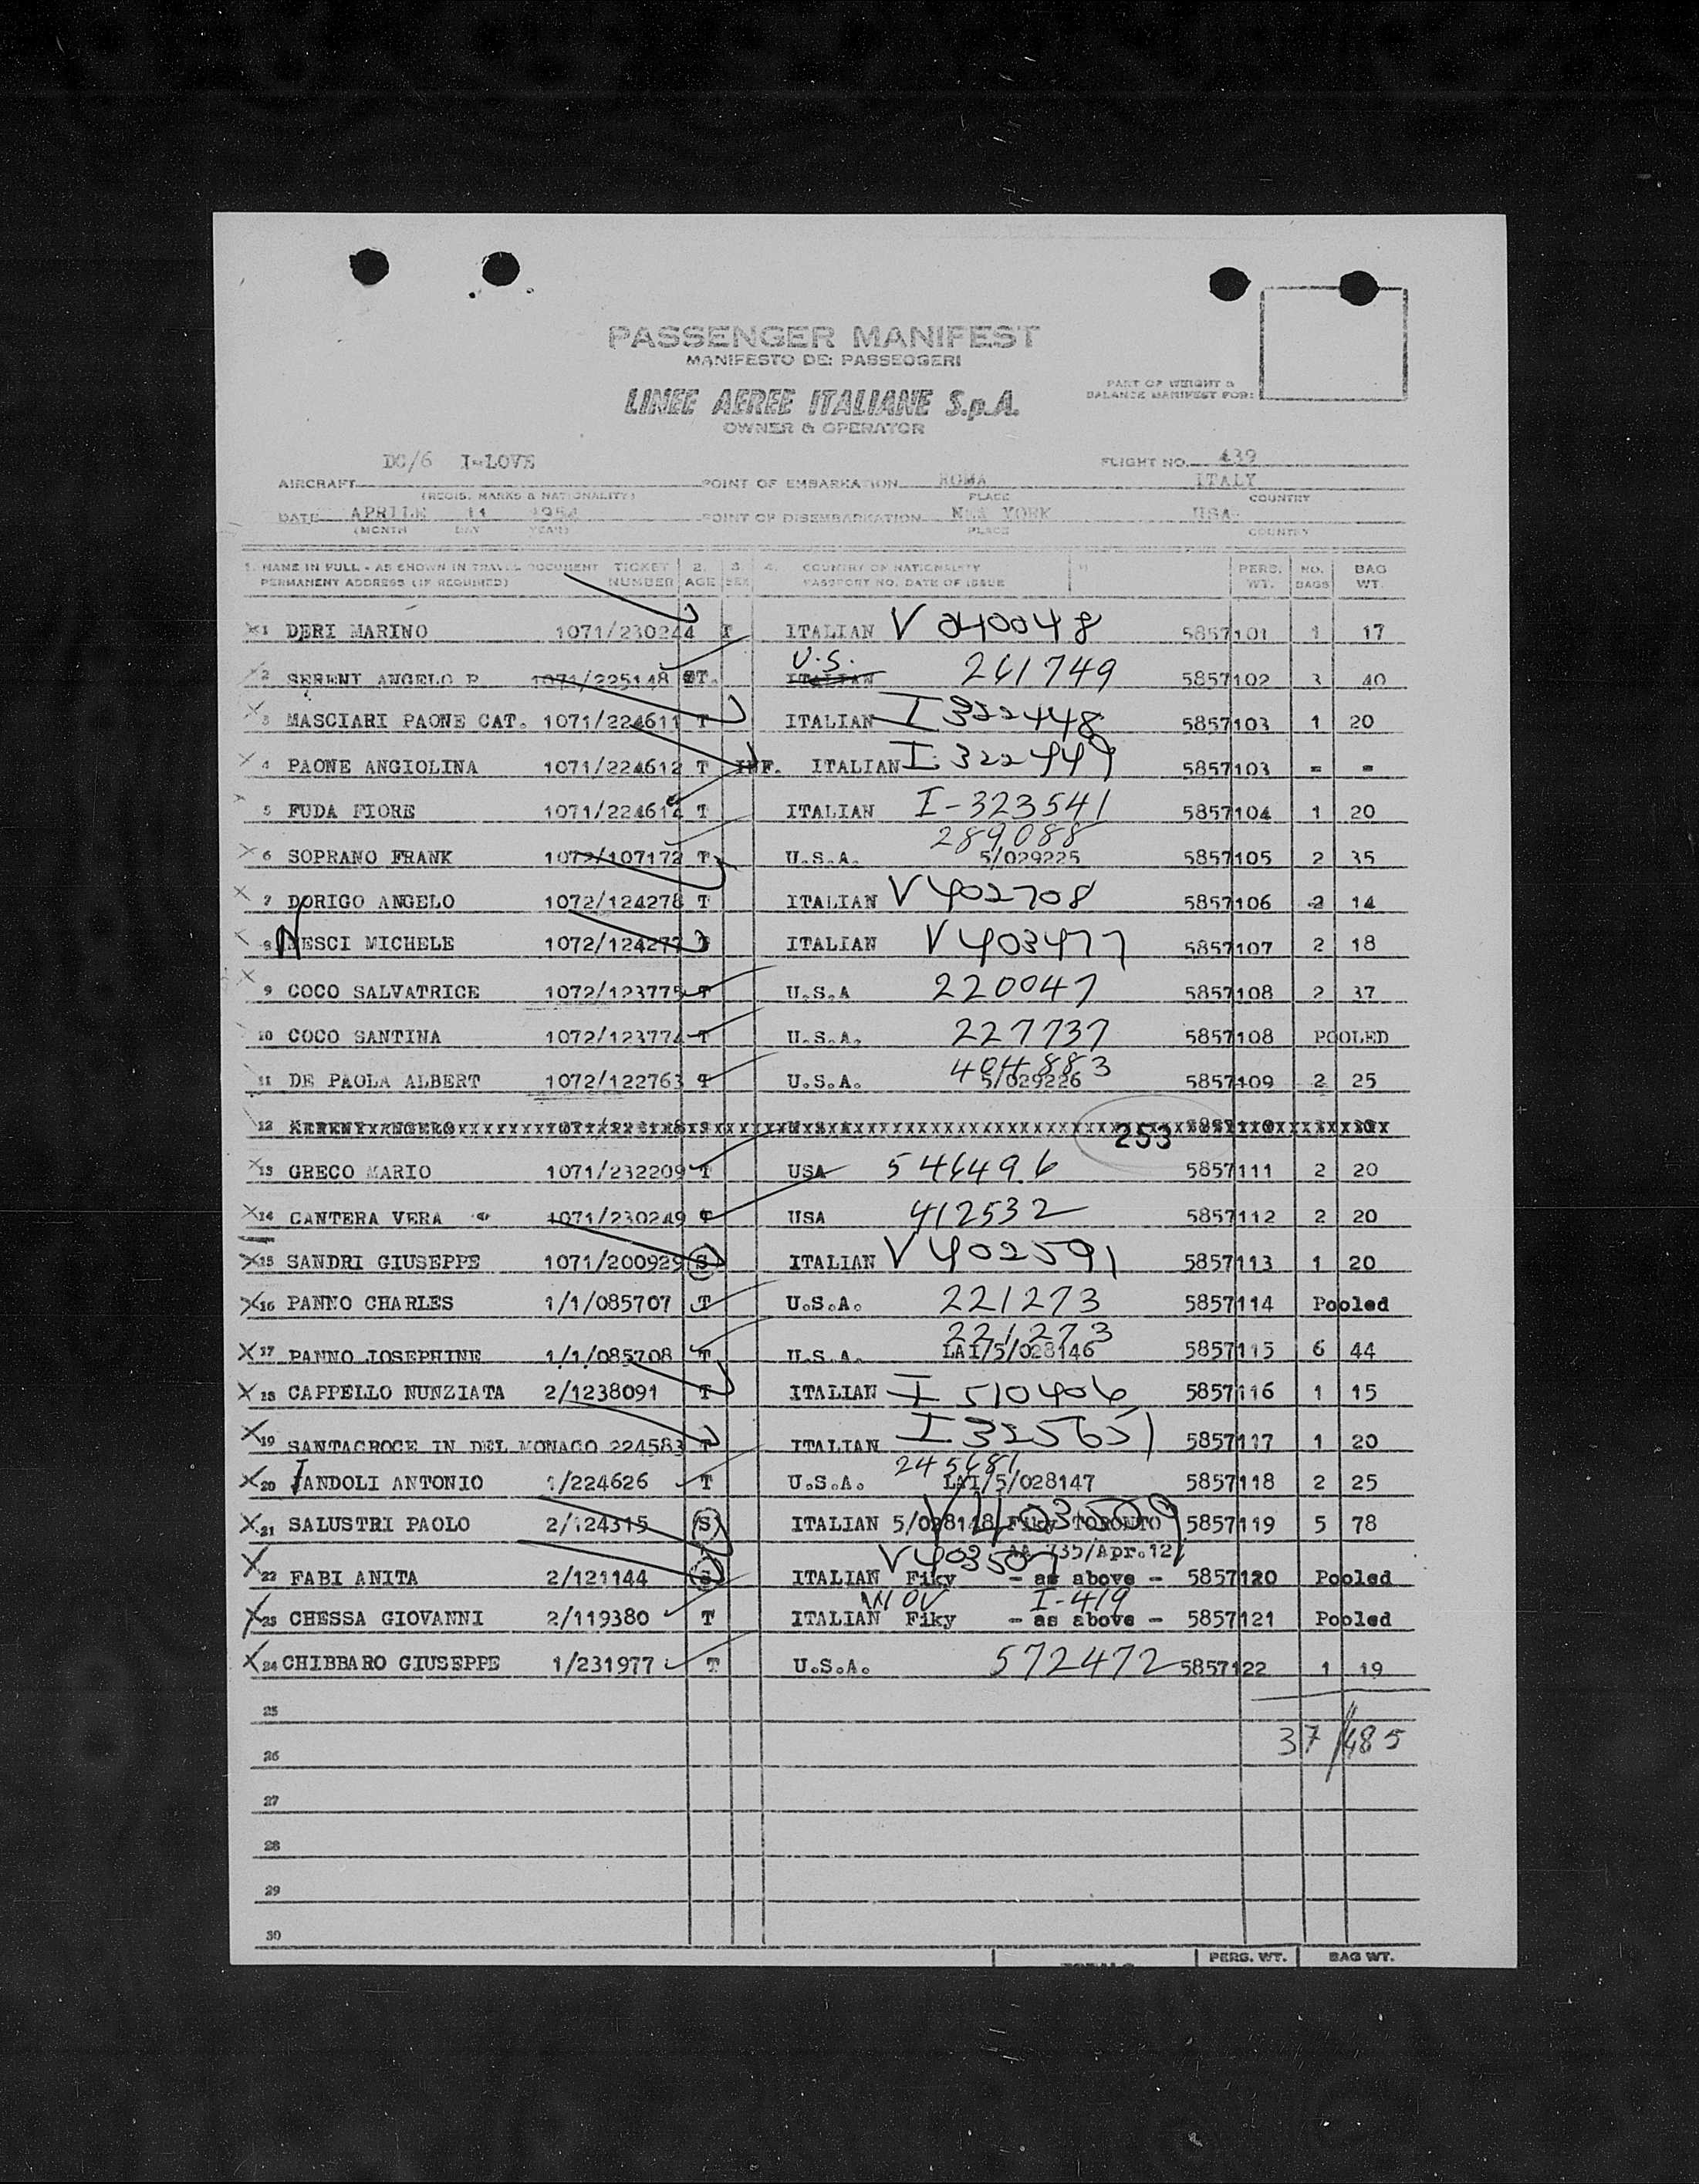 PASSENGER MANIFEST
MANIFESTO DEI PASSEGGERI
LINEE AEREE ITALIANE S.p.A.
OWNER & OPERATOR
PART OF WEIGHT &
BALANCE MANIFEST FOR:
DC/6 I-LOVE FLIGHT NO. 439
AIRCRAFT POINT OF EMBARKATION ROMA ITALY
(REGIS. MARKS & NATIONALITY) PLACE COUNTRY
DATE APRILE 11 1954 POINT OF DISEMBARKATION NEW YORK USA
(MONTH DAY YEAR) PLACE COUNTRY
1. NAME IN FULL - AS SHOWN IN TRAVEL DOCUMENT TICKET 2. 3. 4. COUNTRY OF NATIONALITY PERS. NO. BAG
PERMANENT ADDRESS (IF REQUIRED) NUMBER AGE SEX PASSPORT NO. DATE OF ISSUE WT. BAGS WT.
1 DERI MARINO 1071/230244 T ITALIAN V 040048 5857101 1 17
U.S.
2 SERENI ANGELO P. 1071/225148 T. ITALIAN 261749 5857102 3 40
3 MASCIARI PAONE CAT. 1071/224611 T ITALIAN I 322448 5857103 1 20
4 PAONE ANGIOLINA 1071/224612 T INF. ITALIAN I 322449 5857103 = =
5 FUDA FIORE 1071/224614 T ITALIAN I-323541 5857104 1 20
289,088
6 SOPRANO FRANK 1072/107172 T U.S.A. 5/029225 5857105 2 35
7 DORIGO ANGELO 1072/124278 T ITALIAN V 402708 5857106 2 14
8 NESCI MICHELE 1072/124277 T ITALIAN V 403477 5857107 2 18
9 COCO SALVATRICE 1072/123775 T U.S.A 220047 5857108 2 37
10 COCO SANTINA 1072/123774 T U.S.A. 227737 5857108 POOLED
404883
11 DE PAOLA ALBERT 1072/122763 T U.S.A. 5/029226 5857109 2 25
12 253
13 GRECO MARIO 1071/232209 T USA 546496 5857111 2 20
14 CANTERA VERA 1071/230249 T USA 412532 5857112 2 20
15 SANDRI GIUSEPPE 1071/200929 S ITALIAN V 402591 5857113 1 20
16 PANNO CHARLES 1/1/085707 T U.S.A. 221273 5857114 Pooled
221273
17 PANNO IOSEPHINE 1/1/085708 T U.S.A. LAI/5/028146 5857115 6 44
18 CAPPELLO NUNZIATA 2/1238091 T ITALIAN I 510406 5857116 1 15
19 SANTACROCE IN DEL MONACO 224583 T ITALIAN I 325651 5857117 1 20
245681
20 IANDOLI ANTONIO 1/224626 T U.S.A. LAI/5/028147 5857118 2 25
21 SALUSTRI PAOLO 2/124315 S ITALIAN 5/028148 Fiky TORONTO V 403509 5857119 5 78
AA 735/Apr.12/
V 403507
22 FABI ANITA 2/121144 S ITALIAN Fiky - as above - 5857120 Pooled
I-419
23 CHESSA GIOVANNI 2/119380 T ITALIAN Fiky - as above - 5857121 Pooled
24 CHIBBARO GIUSEPPE 1/231977 T U.S.A. 572472 5857122 1 19
25
37/485
26
27
28
29
30
PERS. WT. BAG WT.